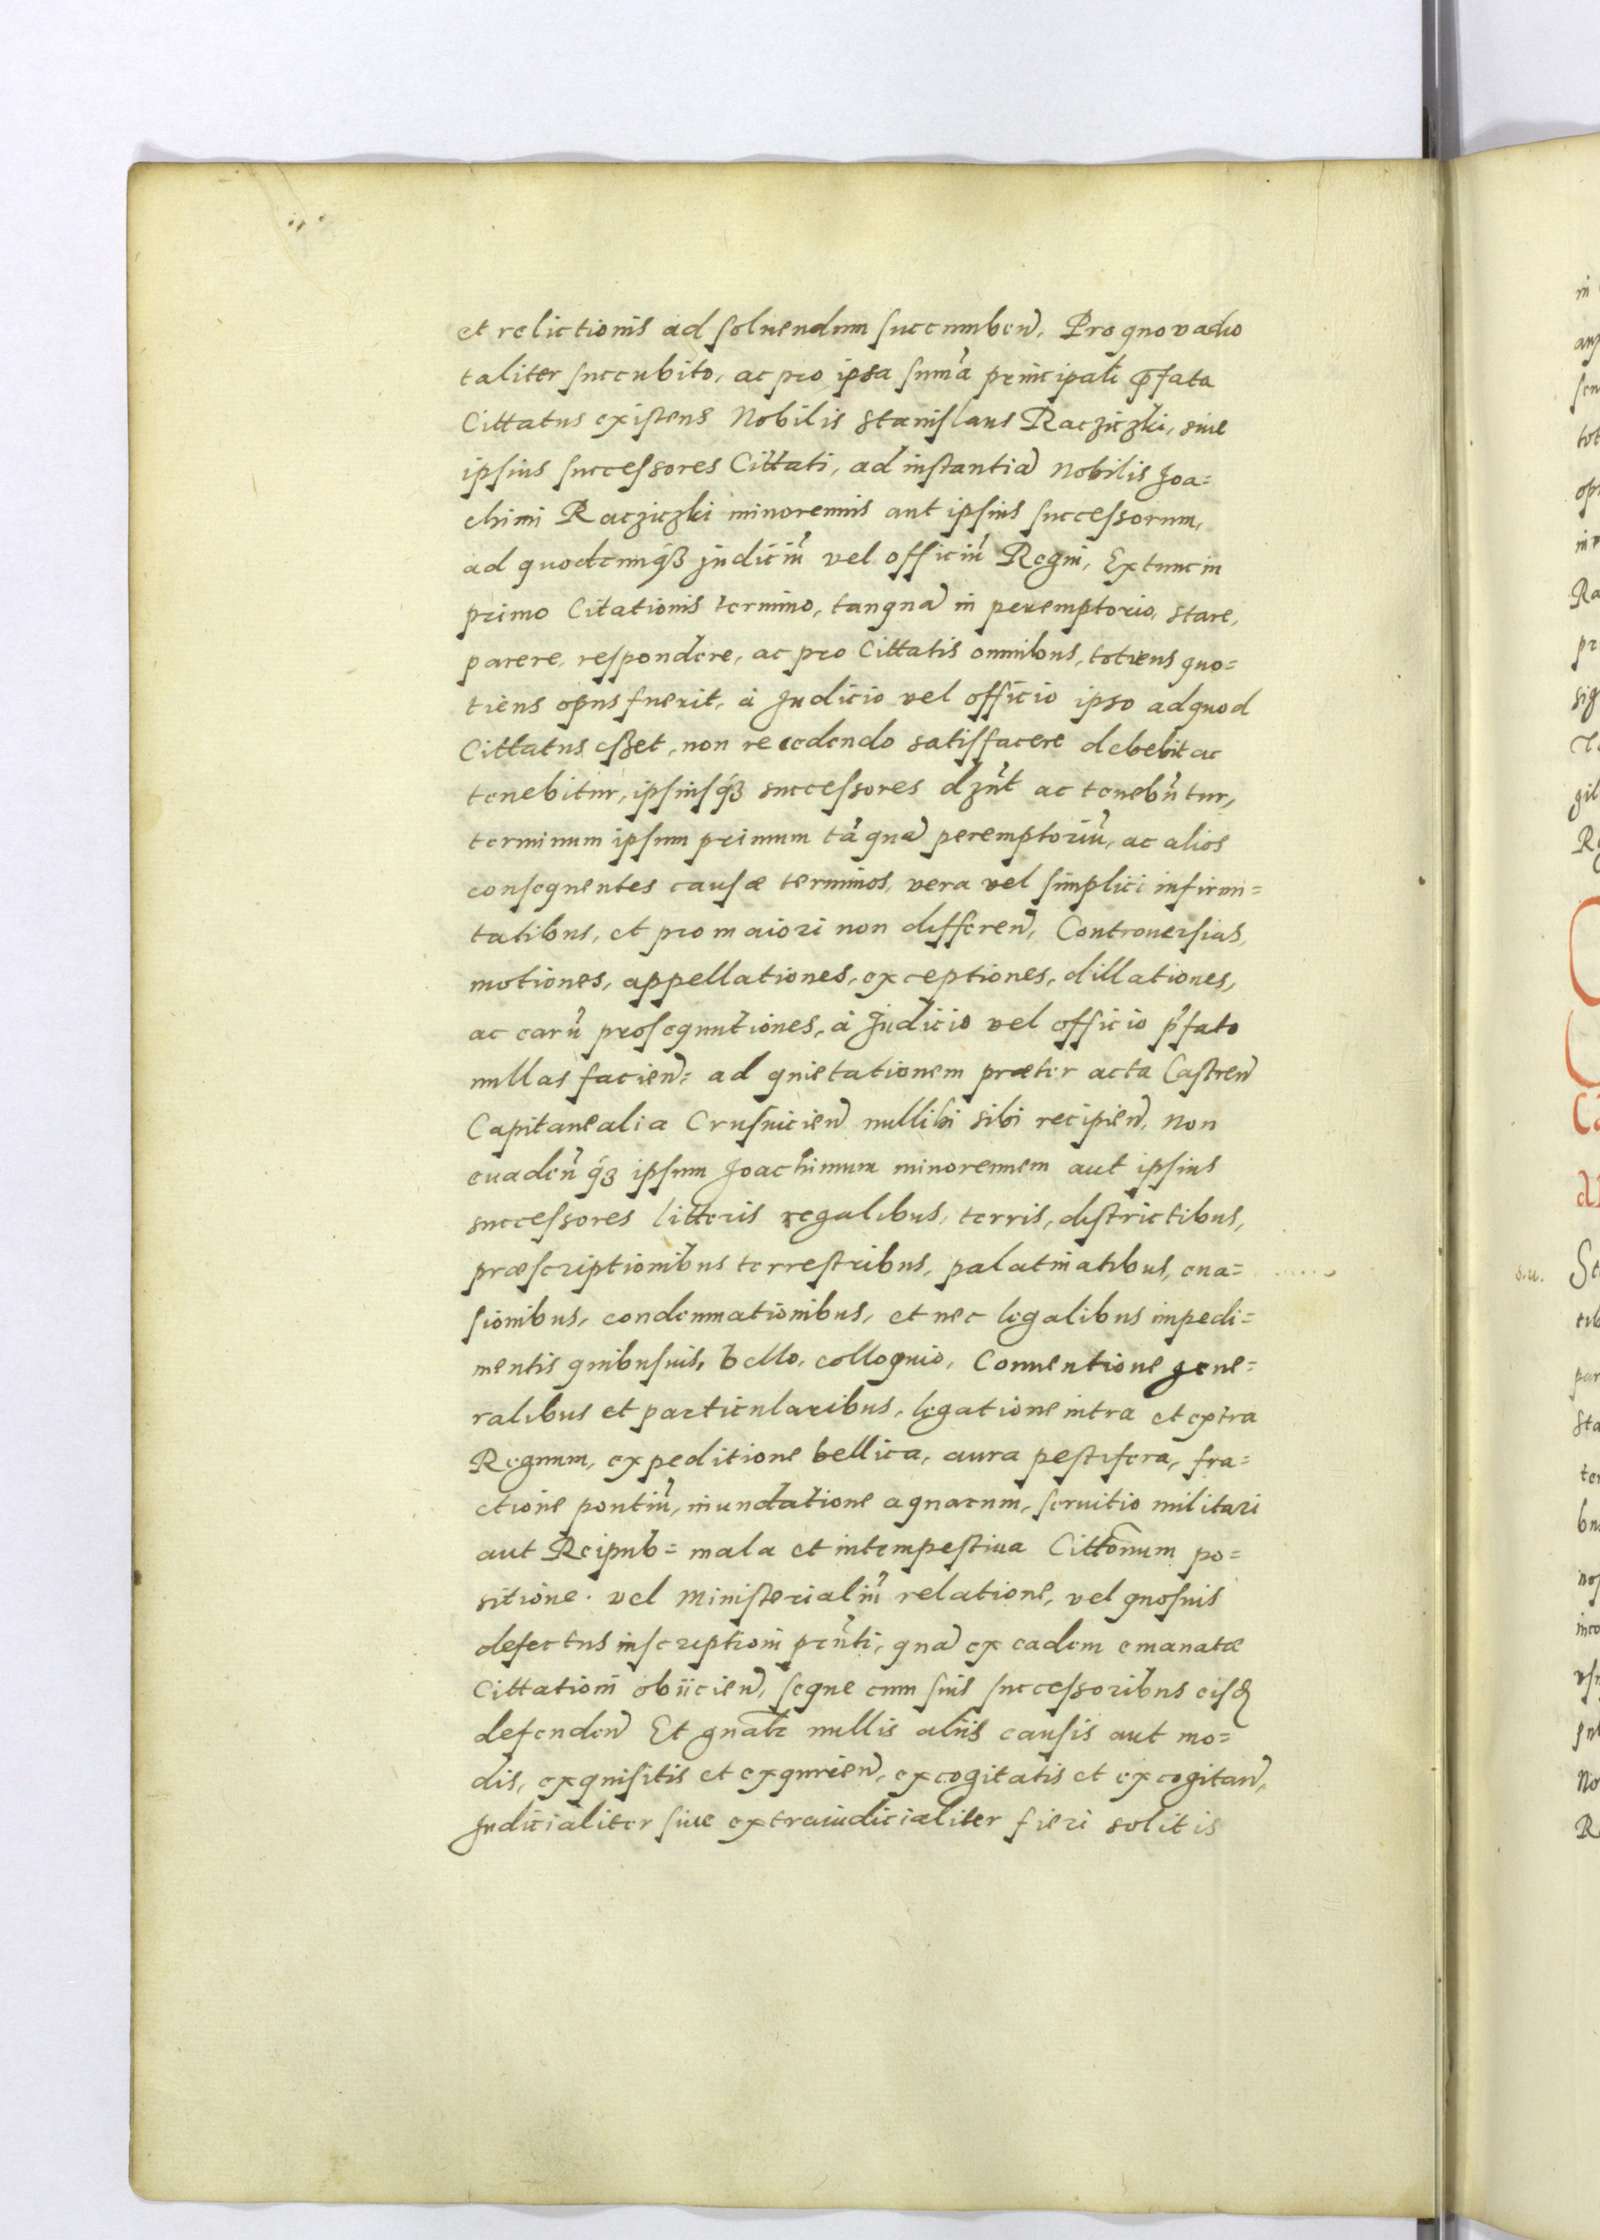 et relictionis ad soluendum succumben̄. Pro quo vadio
taliter succubito, ac pro ipsa sum̄a principali p̄fata
Cittatus existens Nobilis Stanislaus Racziczki, siue
ipsius successores Cittati, ad instantiā Nobilis Joa=
chimi Racziczki minorennis aut ipsius successorum,
ad quodcunq́ꝫ judiciū vel officiū Regni, Ex tunc in
primo Citationis termino, tanquā in peremptorio, stare,
parere, respondere, ac pro Cittatis omnibus, totiens quo=
tiens opus fuerit, à Judicio vel officio ipso ad quod
Cittatus esset, non recedendo satisfacere debebit ac
tenebitur, ipsiusq́ꝫ successores dꝫnt ac tenebūtur,
terminum ipsum primum tāquā peremptoriū, ac alios
consequentes causæ terminos, vera vel simplici infirmi=
tatibus, et pro maiori non differen̄, Controuersias,
motiones, appellationes, exceptiones, dillationes,
ac earū prosequutiones, à Judicio vel officio p̄fato
nullas facien̄: ad quietationem præter acta Castren̄
Capitanealia Crusuicien̄ nullibi sibi recipien̄, Non
euaden̄ q́ꝫ ipsum Joachimum minorennem aut ipsius
successores litteris regalibus, terris, districtibus,
præscriptionibus terrestribus, palatinatibus, eua=
sionibus, condemnationibus, et nec legalibus impedi=
mentis quibusuis, bello, colloquio, Conuentione gene=
ralibus et particularibus, legatione intra et extra
Regnum, expeditione bellica, aura pestifera, fra=
ctione pontiū, inundatione aquarum, seruitio militari
aut Reipub= mala et intempestiua Citto͞num po=
sitione. vel Ministerialiū relatione, vel quosuis
defectus inscriptioni pn̄ti, quā ex eadem emanatæ
Cittationi obiicien̄, seque cum suis successoribus eisd
defenden̄ Et gn̄alr nullis aliis causis aut mo=
dis, exquisitis et exquirien̄, excogitatis et excogitan̄,
Judicialiter siue extraiudicialiter fieri solitis
s.u.